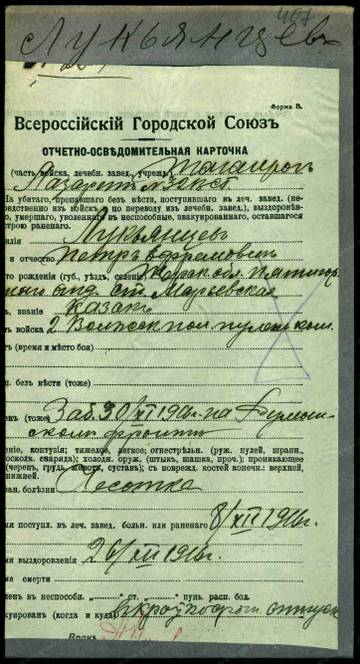 407
Лукьянцев
Форма В.
Всероссійскій Городской Союзъ
ОТЧЕТНО-ОСВѢДОМИТЕЛЬНАЯ КАРТОЧКА
(часть войска, лечебн. завед., учрежд. Таганрогъ
Лазаретъ №
На убитаго, пропавшаго безъ вѣсти, поступившаго въ леч. завед. (не-
средственно изъ войскъ или по переводу из лечебн. завед.), выздоровѣв-
умершаго, уволеннаго въ неспособные, эвакуированнаго, оставшагося
строю раненаго.
илія Лукьянцевъ
и отчество Петръ Ефремовичъ
то рожденія (губ., уѣзд., селеніе) Терск. обл. Пятигор
отд. ст. Марьевская
ъ, званіе Казакъ
ъ войска 2 пулем. ком.
тъ (время и мѣсто боя)
п. безъ вѣсти (тоже)
енъ (тоже) Заб. 30/XI 1916 г. на Румын-
скомъ фронтѣ
еніе, контузія; тяжелое, легкое; огнестрѣльн. (руж. пулей, шрапн.,
осколк. снаряда); холодн. оруж. (штыкъ, шашка, проч.); проникающее
(черепъ, грудь, животъ, суставъ); съ поврежд. костей конечн.: верхней,
нижней.
ван. болѣзни Чесотка
мя поступл. въ леч. завед. больн. или раненаго 8/XII 1916 г.
мя выздоровленія 26/XII 1916 г.
мя смерти
ленъ въ неспособн. „ “ ст. „ “ пунк. расп. бол.
куированъ (когда и куда) отпускъ
Врачъ